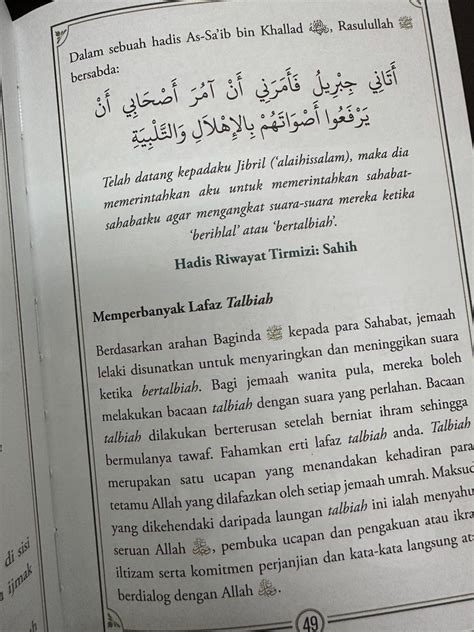 Dalam sebuah hadis As-Sa'ib bin Khallad رضي الله عنه, Rasulullah ﷺ
bersabda:
أَتَانِي جِبْرِيلُ فَأَمَرَنِي أَنْ آمُرَ أَصْحَابِي أَنْ
يَرْفَعُوا أَصْوَاتَهُمْ بِالإِهْلَالِ وَالتَّلْبِيَةِ
Telah datang kepadaku Jibril ('alaihissalam), maka dia
memerintahkan aku untuk memerintahkan sahabat-
sahabatku agar mengangkat suara-suara mereka ketika
'berihlal' atau 'bertalbiah'.
Hadis Riwayat Tirmizi: Sahih
Memperbanyak Lafaz Talbiah
Berdasarkan arahan Baginda ﷺ kepada para Sahabat, jemaah
lelaki disunatkan untuk menyaringkan dan meninggikan suara
ketika bertalbiah. Bagi jemaah wanita pula, mereka boleh
melakukan bacaan talbiah dengan suara yang perlahan. Bacaan
talbiah dilakukan berterusan setelah berniat ihram sehingga
bermulanya tawaf. Fahamkan erti lafaz talbiah anda. Talbiah
merupakan satu ucapan yang menandakan kehadiran para
tetamu Allah yang dilafazkan oleh setiap jemaah umrah. Maksud
yang dikehendaki daripada laungan talbiah ini ialah menyahu
seruan Allah, pembuka ucapan dan pengakuan atau ikra
iltizam serta komitmen perjanjian dan kata-kata langsung ata
berdialog dengan Allah.
49
di sisi
ijmak
uh